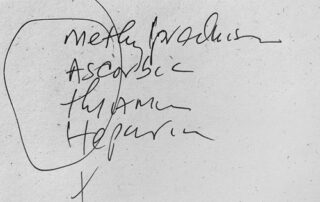 methylprednisn
Ascorbic
thiAmin
Heparin